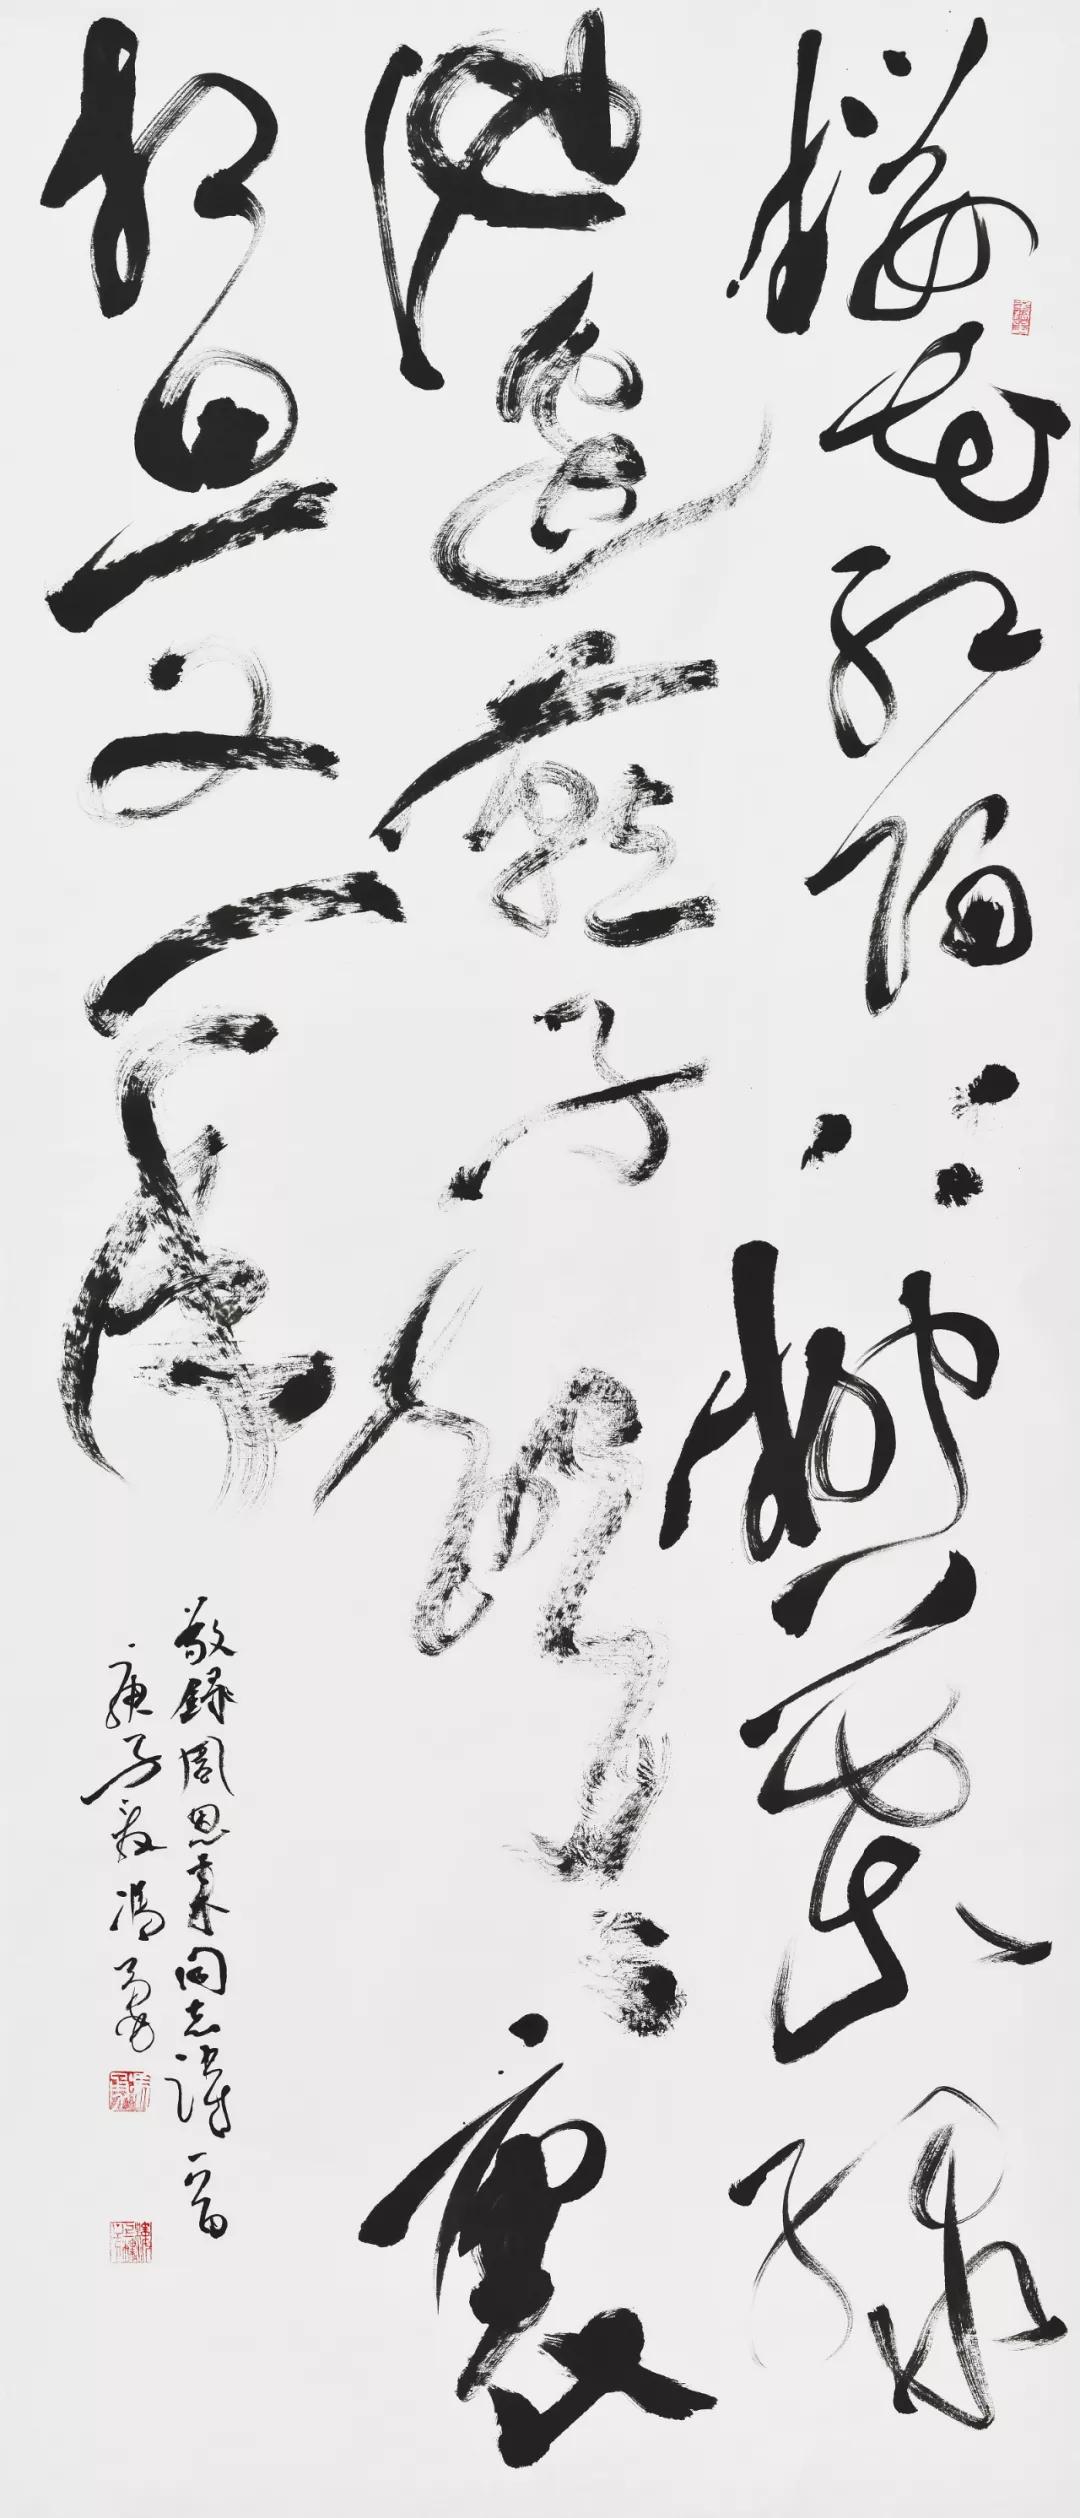 櫻花紅陌上柳葉綠
池邊燕子聲聲裏
相思又一年
敬錄周恩來同志詩一首
庚子夏馮勇